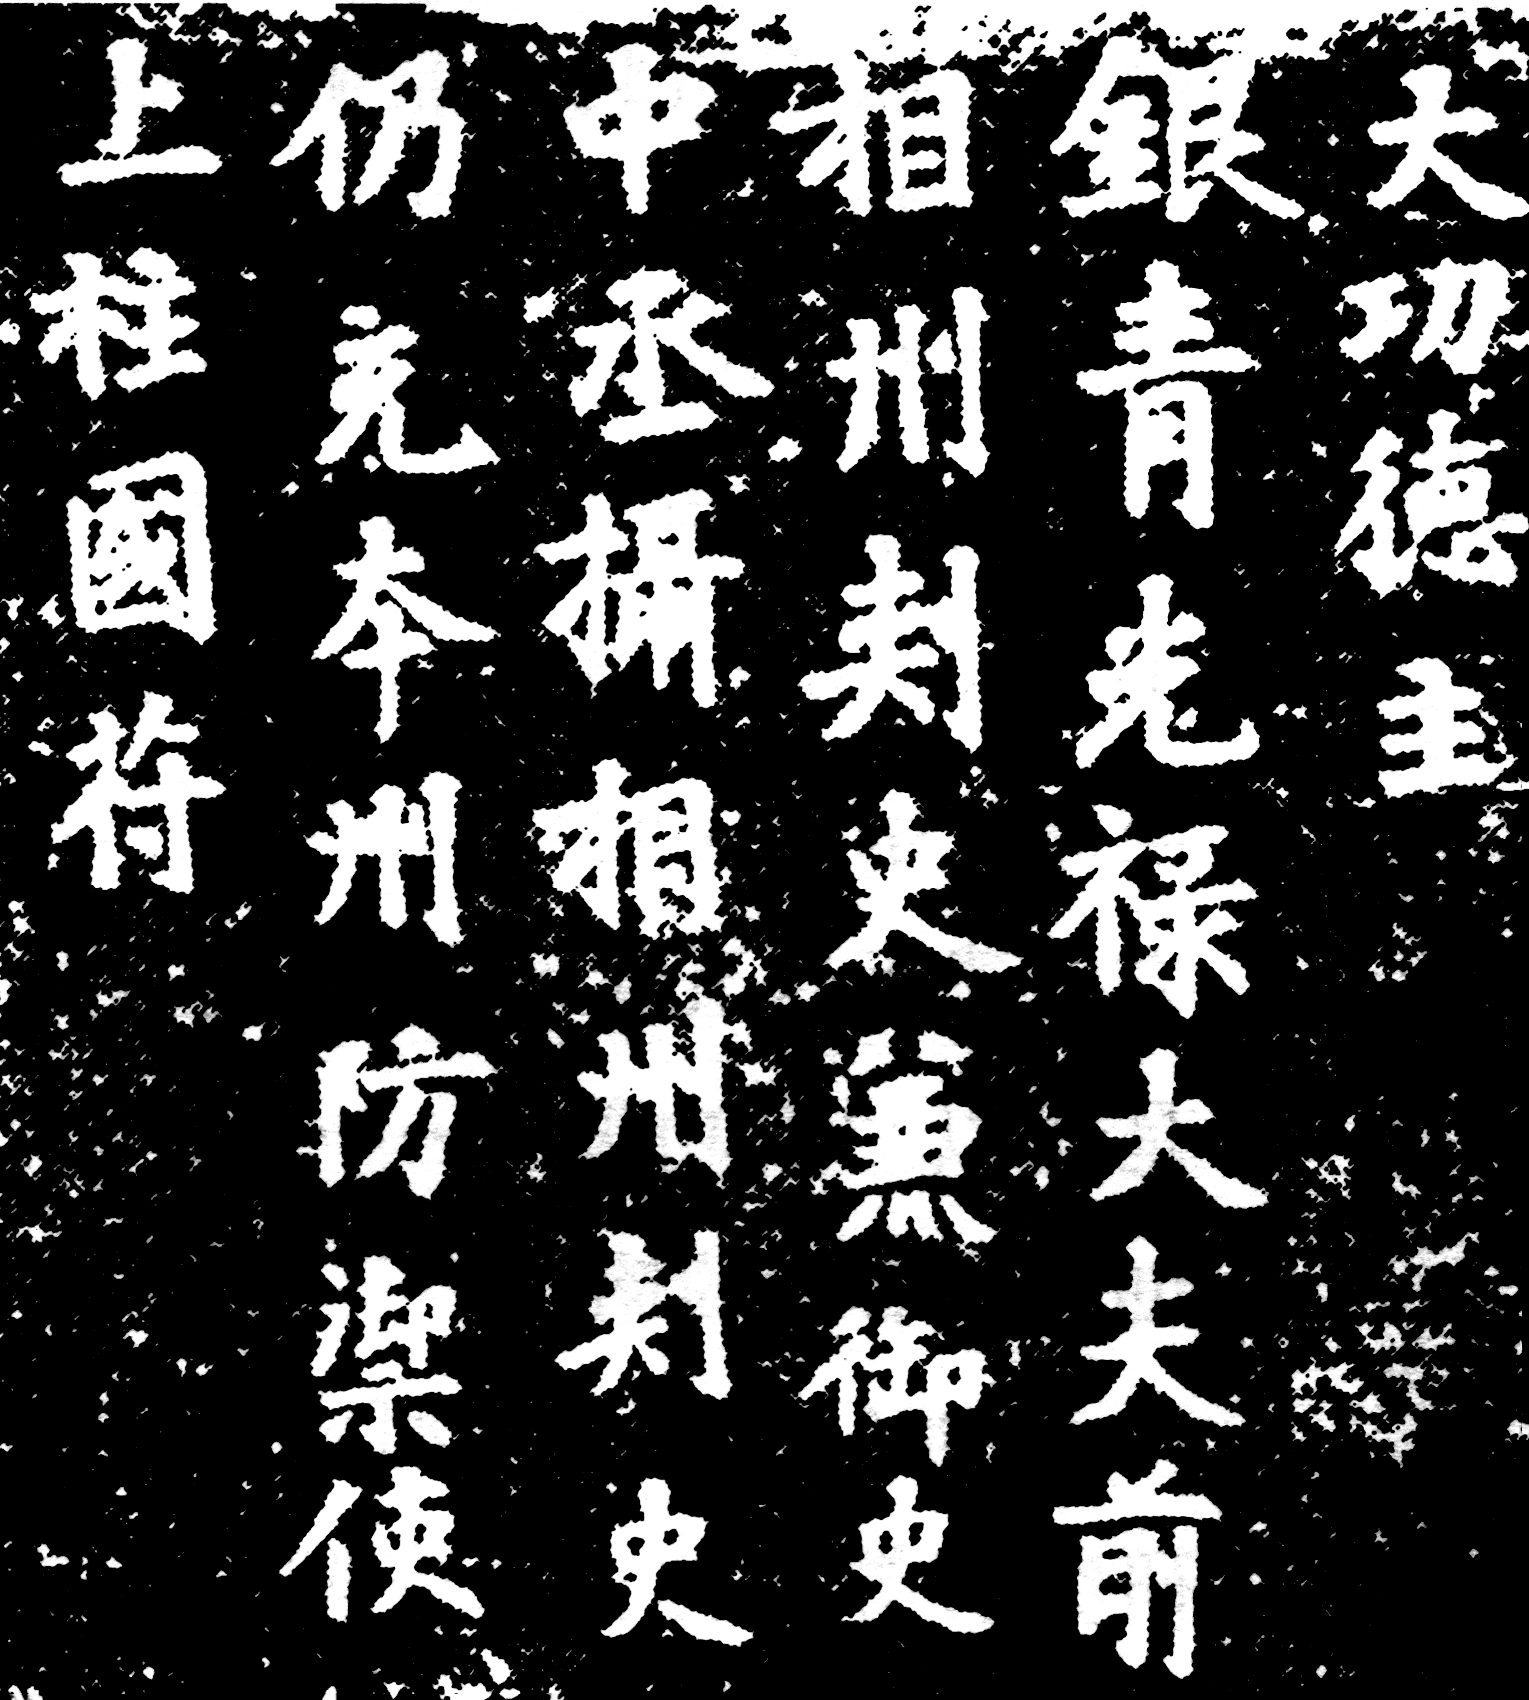 大功德主
銀青光祿大夫前
相州刾史兼御史
中丞攝相州刾史
仍充本州防禦使
上柱國苻